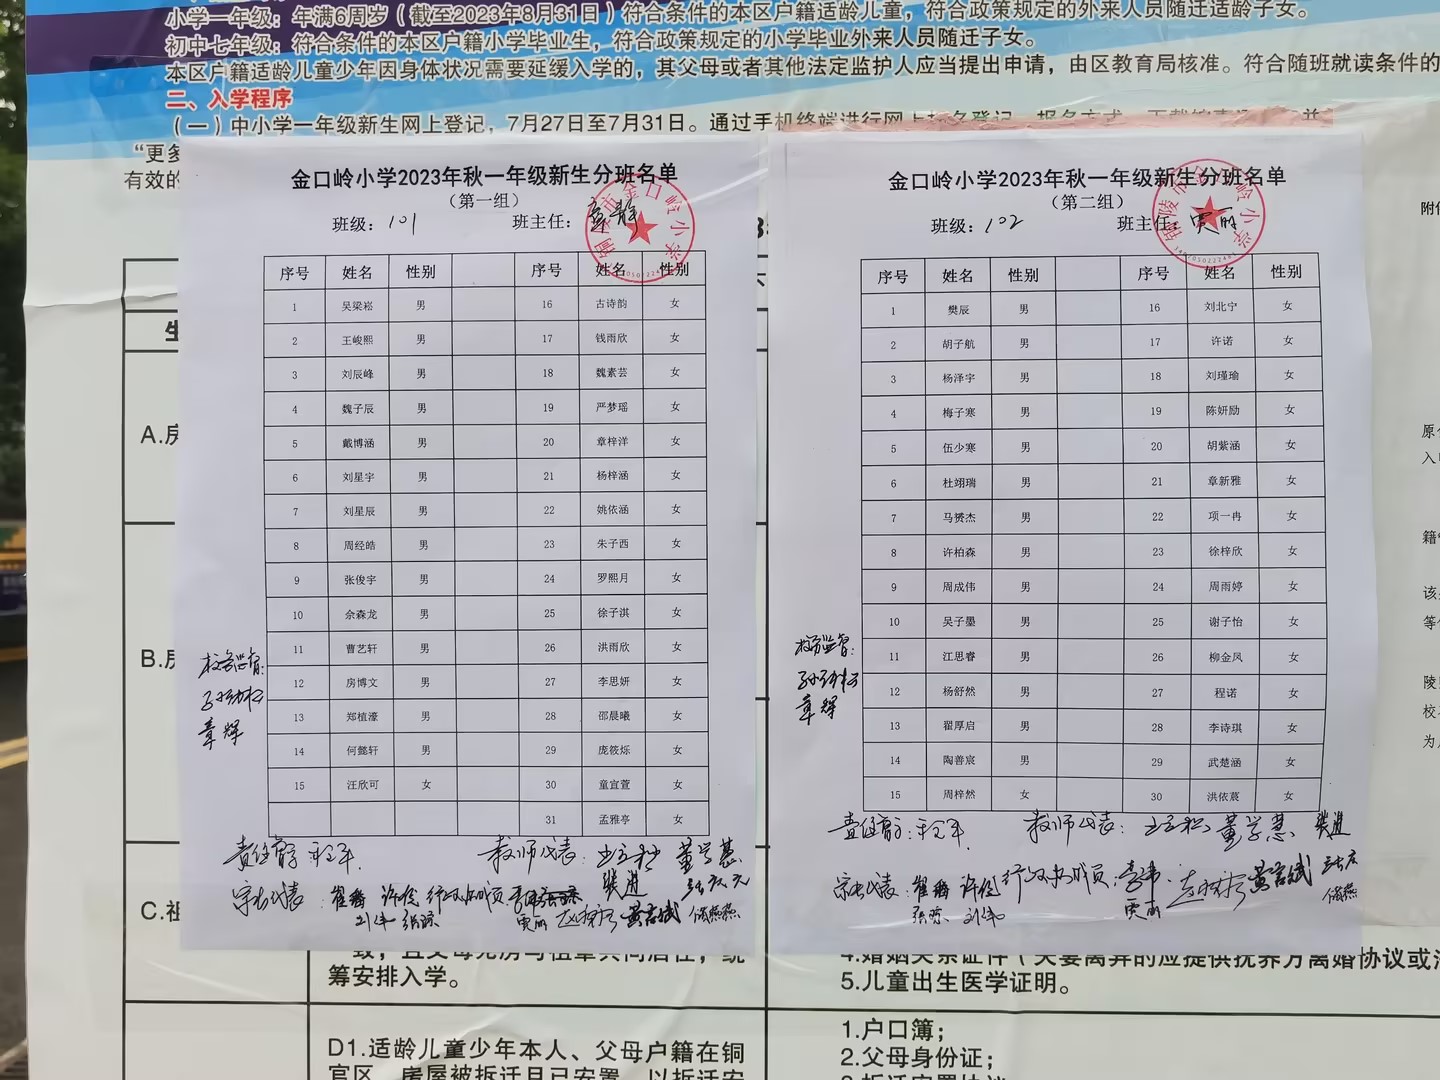 小学一年级：年满6周岁（截至2023年8月31日）符合条件的本区户籍适龄儿童，符合政策规定的外来人员随迁适龄子女。
初中七年级：符合条件的本区户籍小学毕业生，符合政策规定的小学毕业外来人员随迁子女。
本区户籍适龄儿童少年因身体状况需要延缓入学的，其父母或者其他法定监护人应当提出申请，由区教育局核准。符合随班就读条件的
二、入学程序
（一）中小学一年级新生网上登记，7月27日至7月31日。通过手机终端进行网上报名登记
“更多
有效的
金口岭小学2023年秋一年级新生分班名单
（第一组）
班级：101 班主任：章静
序号 姓名 性别 序号 姓名 性别
1 吴梁崧 男 16 古诗韵 女
2 王峻熙 男 17 钱雨欣 女
3 刘辰峰 男 18 魏素芸 女
4 魏子辰 男 19 严梦瑶 女
5 戴博涵 男 20 章梓洋 女
6 刘星宇 男 21 杨梓涵 女
7 刘星辰 男 22 姚依涵 女
8 周经皓 男 23 朱子西 女
9 张俊宇 男 24 罗熙月 女
10 余森龙 男 25 徐子淇 女
11 曹艺轩 男 26 洪雨欣 女
12 房博文 男 27 李思妍 女
13 郑植濠 男 28 邵晨曦 女
14 何懿轩 男 29 庞筱烁 女
15 汪欣可 女 30 童宜萱 女
31 孟雅亭 女
校务监督：
章辉
教师代表： 董学慧
家长代表： 许俊 行政班成员
贾丽 黄言斌
金口岭小学2023年秋一年级新生分班名单
（第二组）
班级：102 班主任：贾丽
序号 姓名 性别 序号 姓名 性别
1 樊辰 男 16 刘北宁 女
2 胡子航 男 17 许诺 女
3 杨泽宇 男 18 刘瑾瑜 女
4 梅子寒 男 19 陈妍励 女
5 伍少寒 男 20 胡紫涵 女
6 杜翊瑞 男 21 章新雅 女
7 马赟杰 男 22 项一冉 女
8 许柏森 男 23 徐梓欣 女
9 周成伟 男 24 周雨婷 女
10 吴子墨 男 25 谢子怡 女
11 江思睿 男 26 柳金凤 女
12 杨舒然 男 27 程诺 女
13 翟厚启 男 28 李诗琪 女
14 陶善宸 男 29 武楚涵 女
15 周梓然 女 30 洪依蕞 女
校务监督：
章辉
教师代表： 董学慧
家长代表： 许俊 行政班成员 黄言斌
贾丽
铜陵市金口岭小学
A.房
B.房
C.租
筹安排入学。
D1.适龄儿童少年本人、父母户籍在铜
官区，房屋被拆迁且已安置，以拆迁安
4.婚姻关系证件（夫妻离异的应提供抚养方离婚协议或法
5.儿童出生医学证明。
1.户口簿；
2.父母身份证；